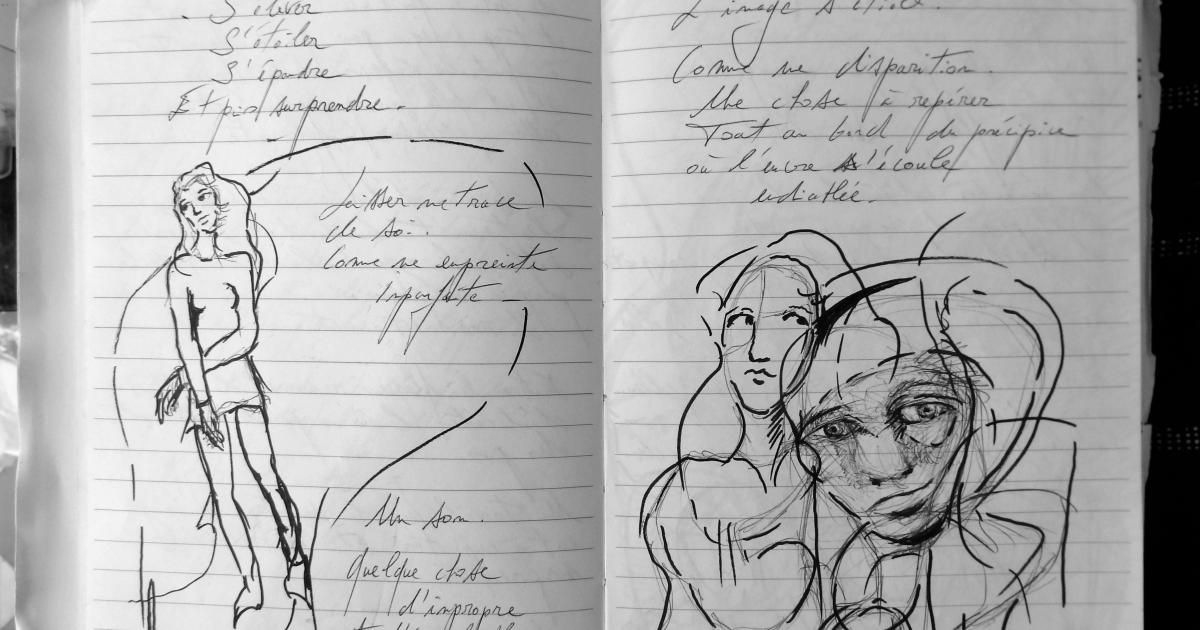 S'élever
S'étoiler
S'épandre
Et puis surprendre.
Laisser une trace
de soi.
Comme une empreinte
imparfaite
Un son.
Quelque chose
d'impropre
L'image
Comme une disparition.
Une chose à repérer
Tout au bord du précipice
où l'encre s'écoule
endiablée.